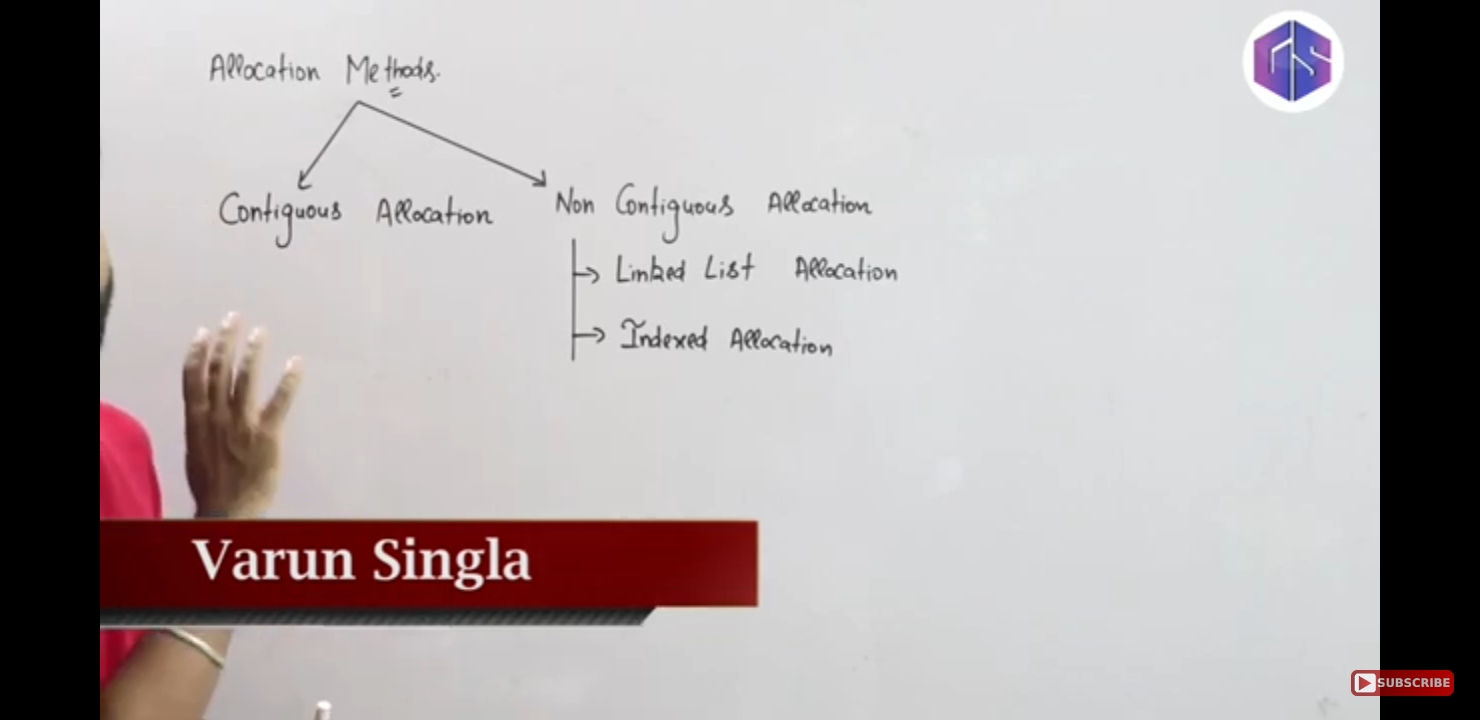 Allocation Methods.
Contiguous Allocation
Non Contiguous Allocation
Linked List Allocation
Indexed Allocation
GS
Varun Singla
SUBSCRIBE